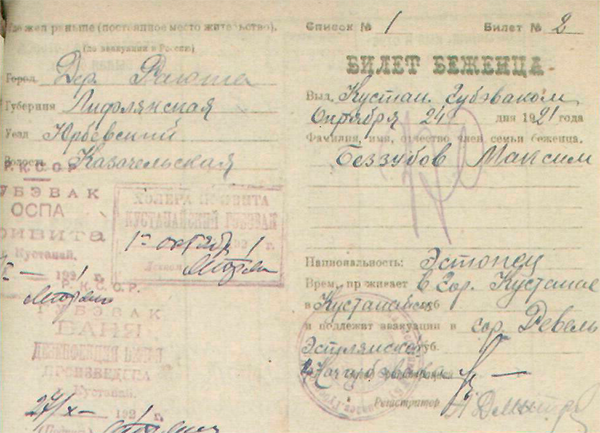 жил раньше (постоянное место жительство).
(до эвакуации в Россию)
Город Дер. Раюша
Губерния Лифлянская
Уезд Юрьевский
Волость Казапельская
Р.К.С.С.Р.
ГУБЭВАК
ОСПА
ПРИВИТА
Кустанай.
192 г.
ХОЛЕРА ПРИВИТА
КУСТАНАЙСКИЙ ГУБЭВАК
1 октября 1921 г.
Р.К.С.С.Р.
ГУБЭВАК
БАНЯ
ДЕЗИНФЕКЦИЯ ВЕЩЕЙ
ПРОИЗВЕДЕНА
Кустанай.
27/IX— 1921 г.
Список № 1 Билет № 2
БИЛЕТ БЕЖЕНЦА
Выд. Кустан. Губэваком
Октября 24 дня 1921 года
Фамилия, имя, отчество член. семьи беженца.
Беззубов Максим
Национальность: Эстонец
Врем. проживает в гор. Кустанае
в Кустанайск. губ
и подлежит эвакуации в гор. Ревель
Эстлянской губ.
Регистратор